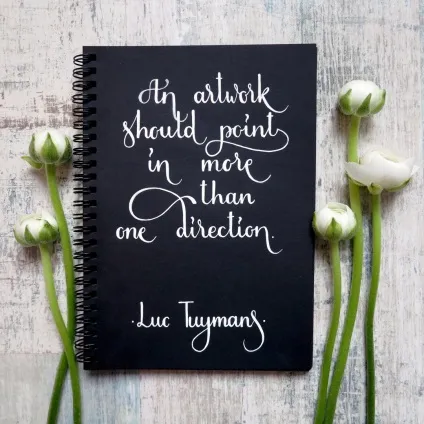 An artwork
should point
in more
than
one direction.
· Luc Tuymans ·